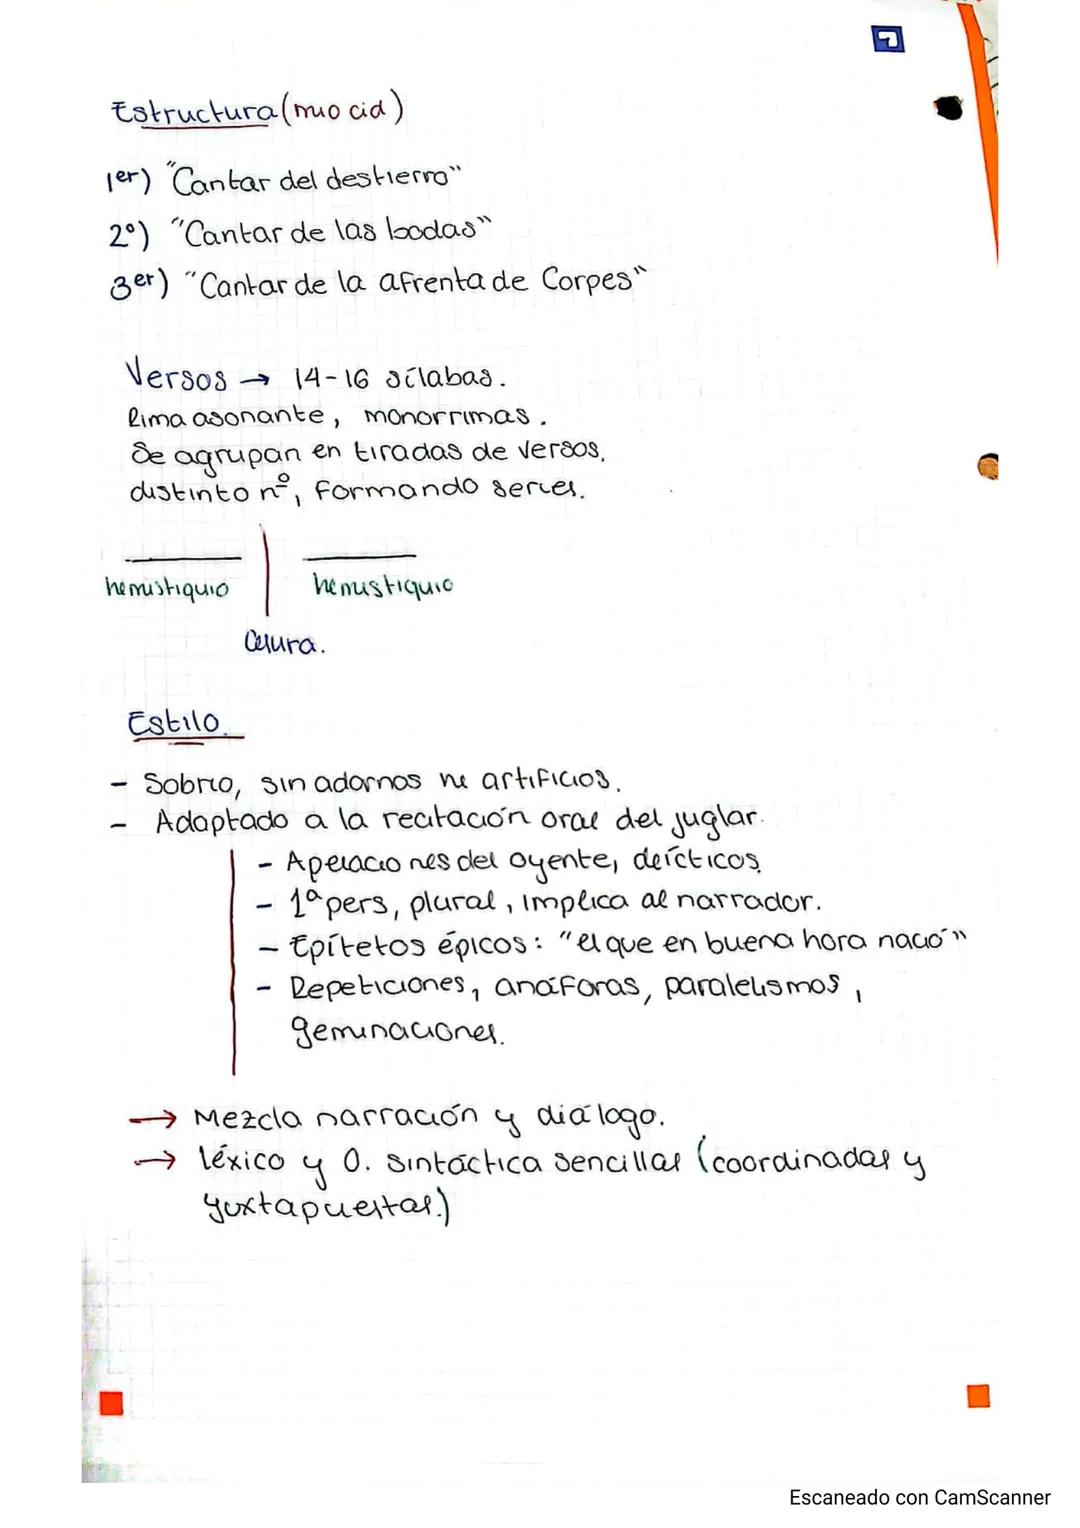 Estructura (mio cid)
1er) "Cantar del destierro"
2º) "Cantar de las bodas"
3er) "Cantar de la afrenta de Corpes"
Versos → 14-16 sílabas.
Rima asonante, monorrimas.
Se agrupan en tiradas de versos,
distinto nº, formando series.
hemistiquio hemistiquio
Cesura.
Estilo.
- Sobrio, sin adornos ni artificios.
- Adaptado a la recitación oral del juglar.
- Apelaciones del oyente, deícticos.
- 1ª pers, plural, implica al narrador.
- Epítetos épicos: "el que en buena hora nació"
- Repeticiones, anáforas, paralelismos,
geminaciones.
→ Mezcla narración y diálogo.
→ léxico y O. sintáctica sencillas (coordinadas y
yuxtapuestas.)
Escaneado con CamScanner